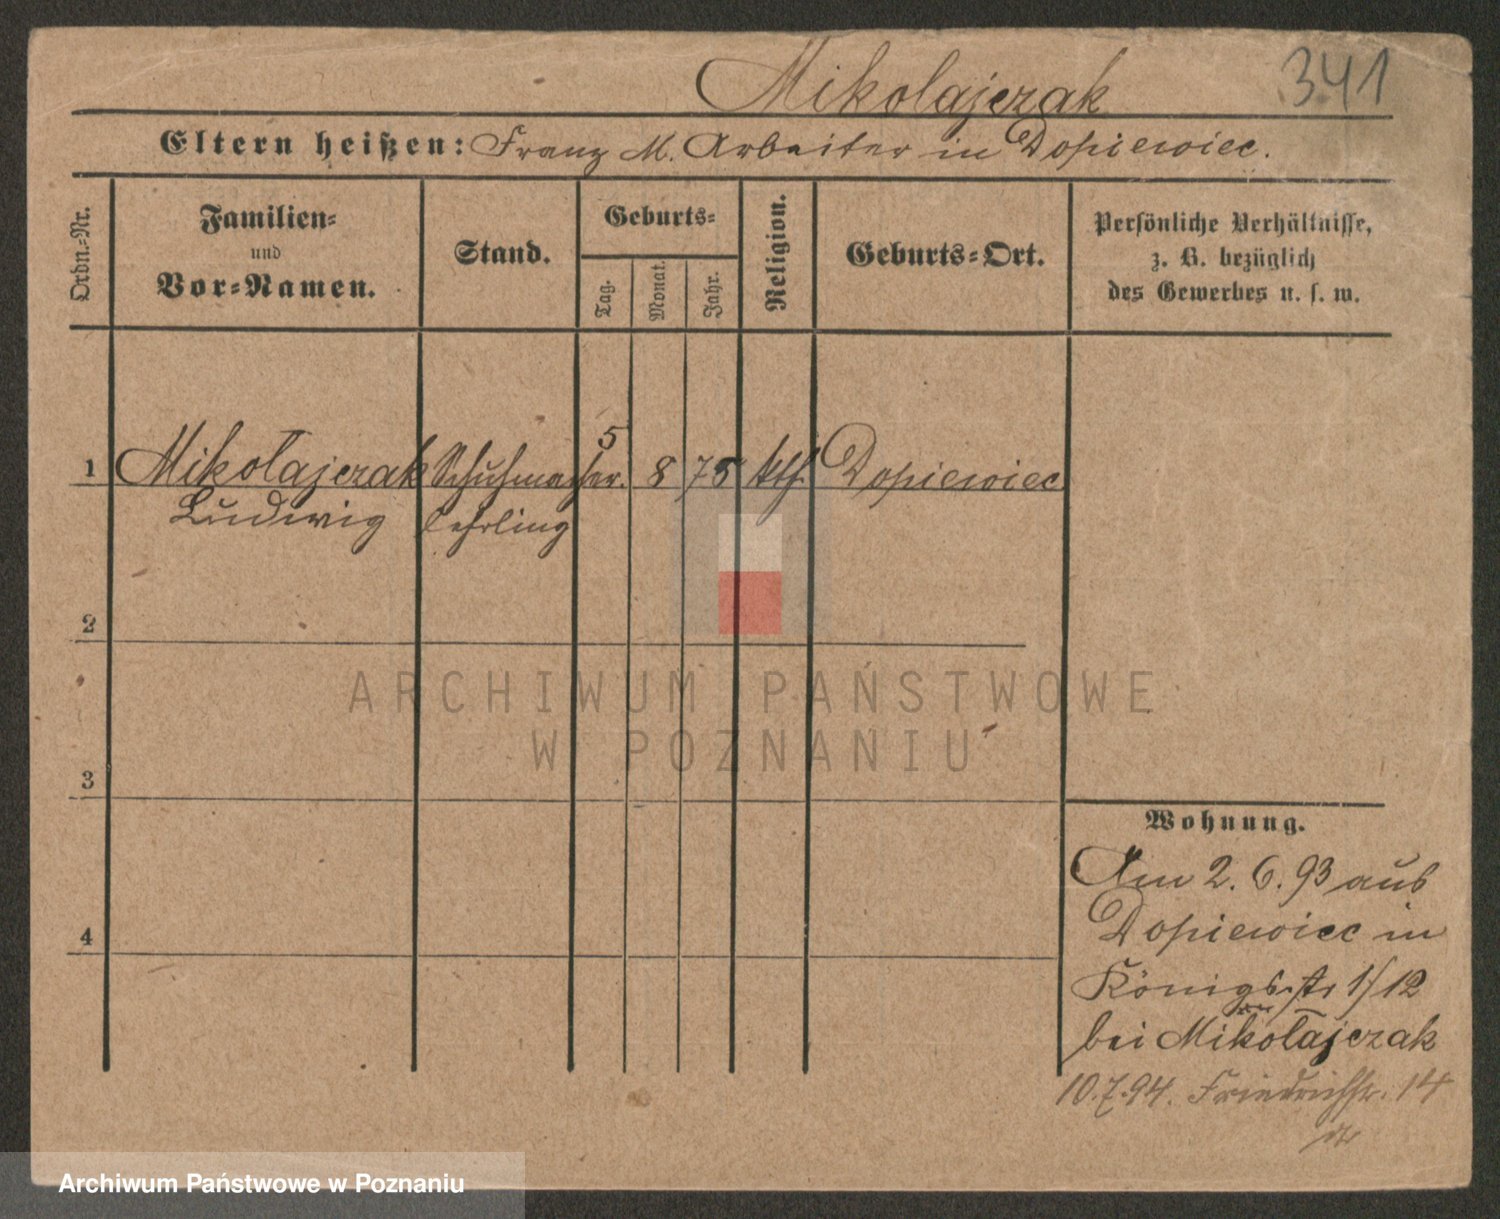 341
Mikolajczak
Eltern heißen: Franz M. Arbeiter in Dopiewiec.
Ordn.-Nr.
Familien-
und
Vor-Namen.
Stand.
Geburts-
Tag.
Monat.
Jahr.
Religion.
Geburts-Ort.
Persönliche Verhältnisse,
z. B. bezüglich
des Gewerbes u. s. w.
1 Mikołajczak Schuhmacher. 5 8 75 kth. Dopiewiec
Ludwig lehrling
2
3
4
ARCHIWUM PAŃSTWOWE
W POZNANIU
Wohnung.
Am 2. 6. 93 aus
Dopiewiec in
Königsstr 1/12
bei Mikołajczak
10.7.94. Friedrichstr. 14
Archiwum Państwowe w Poznaniu